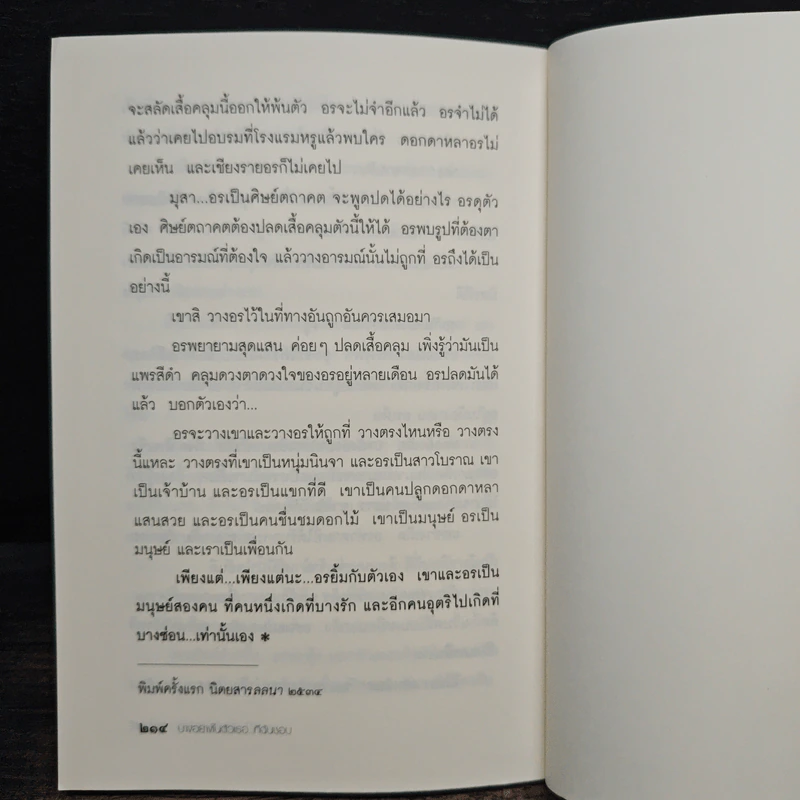 จะสลัดเสื้อคลุมนี้ออกให้พ้นตัว อรจะไม่จำอีกแล้ว อรจำไม่ได้
แล้วว่าเคยไปอบรมที่โรงแรมหรูแล้วพบใคร ดอกดาหลาอรไม่
เคยเห็น และเชียงรายอรก็ไม่เคยไป
มุสา...อรเป็นศิษย์ตถาคต จะพูดปดได้อย่างไร อรดุตัว
เอง ศิษย์ตถาคตต้องปลดเสื้อคลุมตัวนี้ให้ได้ อรพบรูปที่ต้องตา
เกิดเป็นอารมณ์ที่ต้องใจ แล้ววางอารมณ์นั้นไม่ถูกที่ อรถึงได้เป็น
อย่างนี้
เขาสิ วางอรไว้ในที่ทางอันถูกอันควรเสมอมา
อรพยายามสุดแสน ค่อยๆ ปลดเสื้อคลุม เพิ่งรู้ว่ามันเป็น
แพรสีดำ คลุมดวงตาดวงใจของอรอยู่หลายเดือน อรปลดมันได้
แล้ว บอกตัวเองว่า...
อรจะวางเขาและวางอรให้ถูกที่ วางตรงไหนหรือ วางตรง
นี้แหละ วางตรงที่เขาเป็นหนุ่มนินจา และอรเป็นสาวโบราณ เขา
เป็นเจ้าบ้าน และอรเป็นแขกที่ดี เขาเป็นคนปลูกดอกดาหลา
แสนสวย และอรเป็นคนชื่นชมดอกไม้ เขาเป็นมนุษย์ อรเป็น
มนุษย์ และเราเป็นเพื่อนกัน
เพียงแต่...เพียงแต่นะ...อรยิ้มกับตัวเอง เขาและอรเป็น
มนุษย์สองคน ที่คนหนึ่งเกิดที่บางรัก และอีกคนอุตริไปเกิดที่
บางซ่อน...เท่านั้นเอง *
พิมพ์ครั้งแรก นิตยสารลลนา ๒๕๓๔
๒๑๔